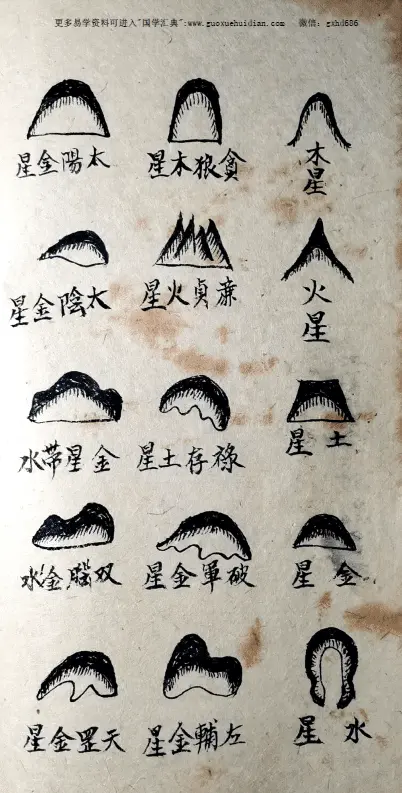 更多易学资料可进入"国学汇典":www.guoxuehuidian.com 微信: gxhd686
木星
火星
土星
金星
水星
貪狼木星
廉貞火星
祿存土星
破軍金星
左輔金星
太陽金星
太陰金星
金星帶水
双腦金水
天罡金星